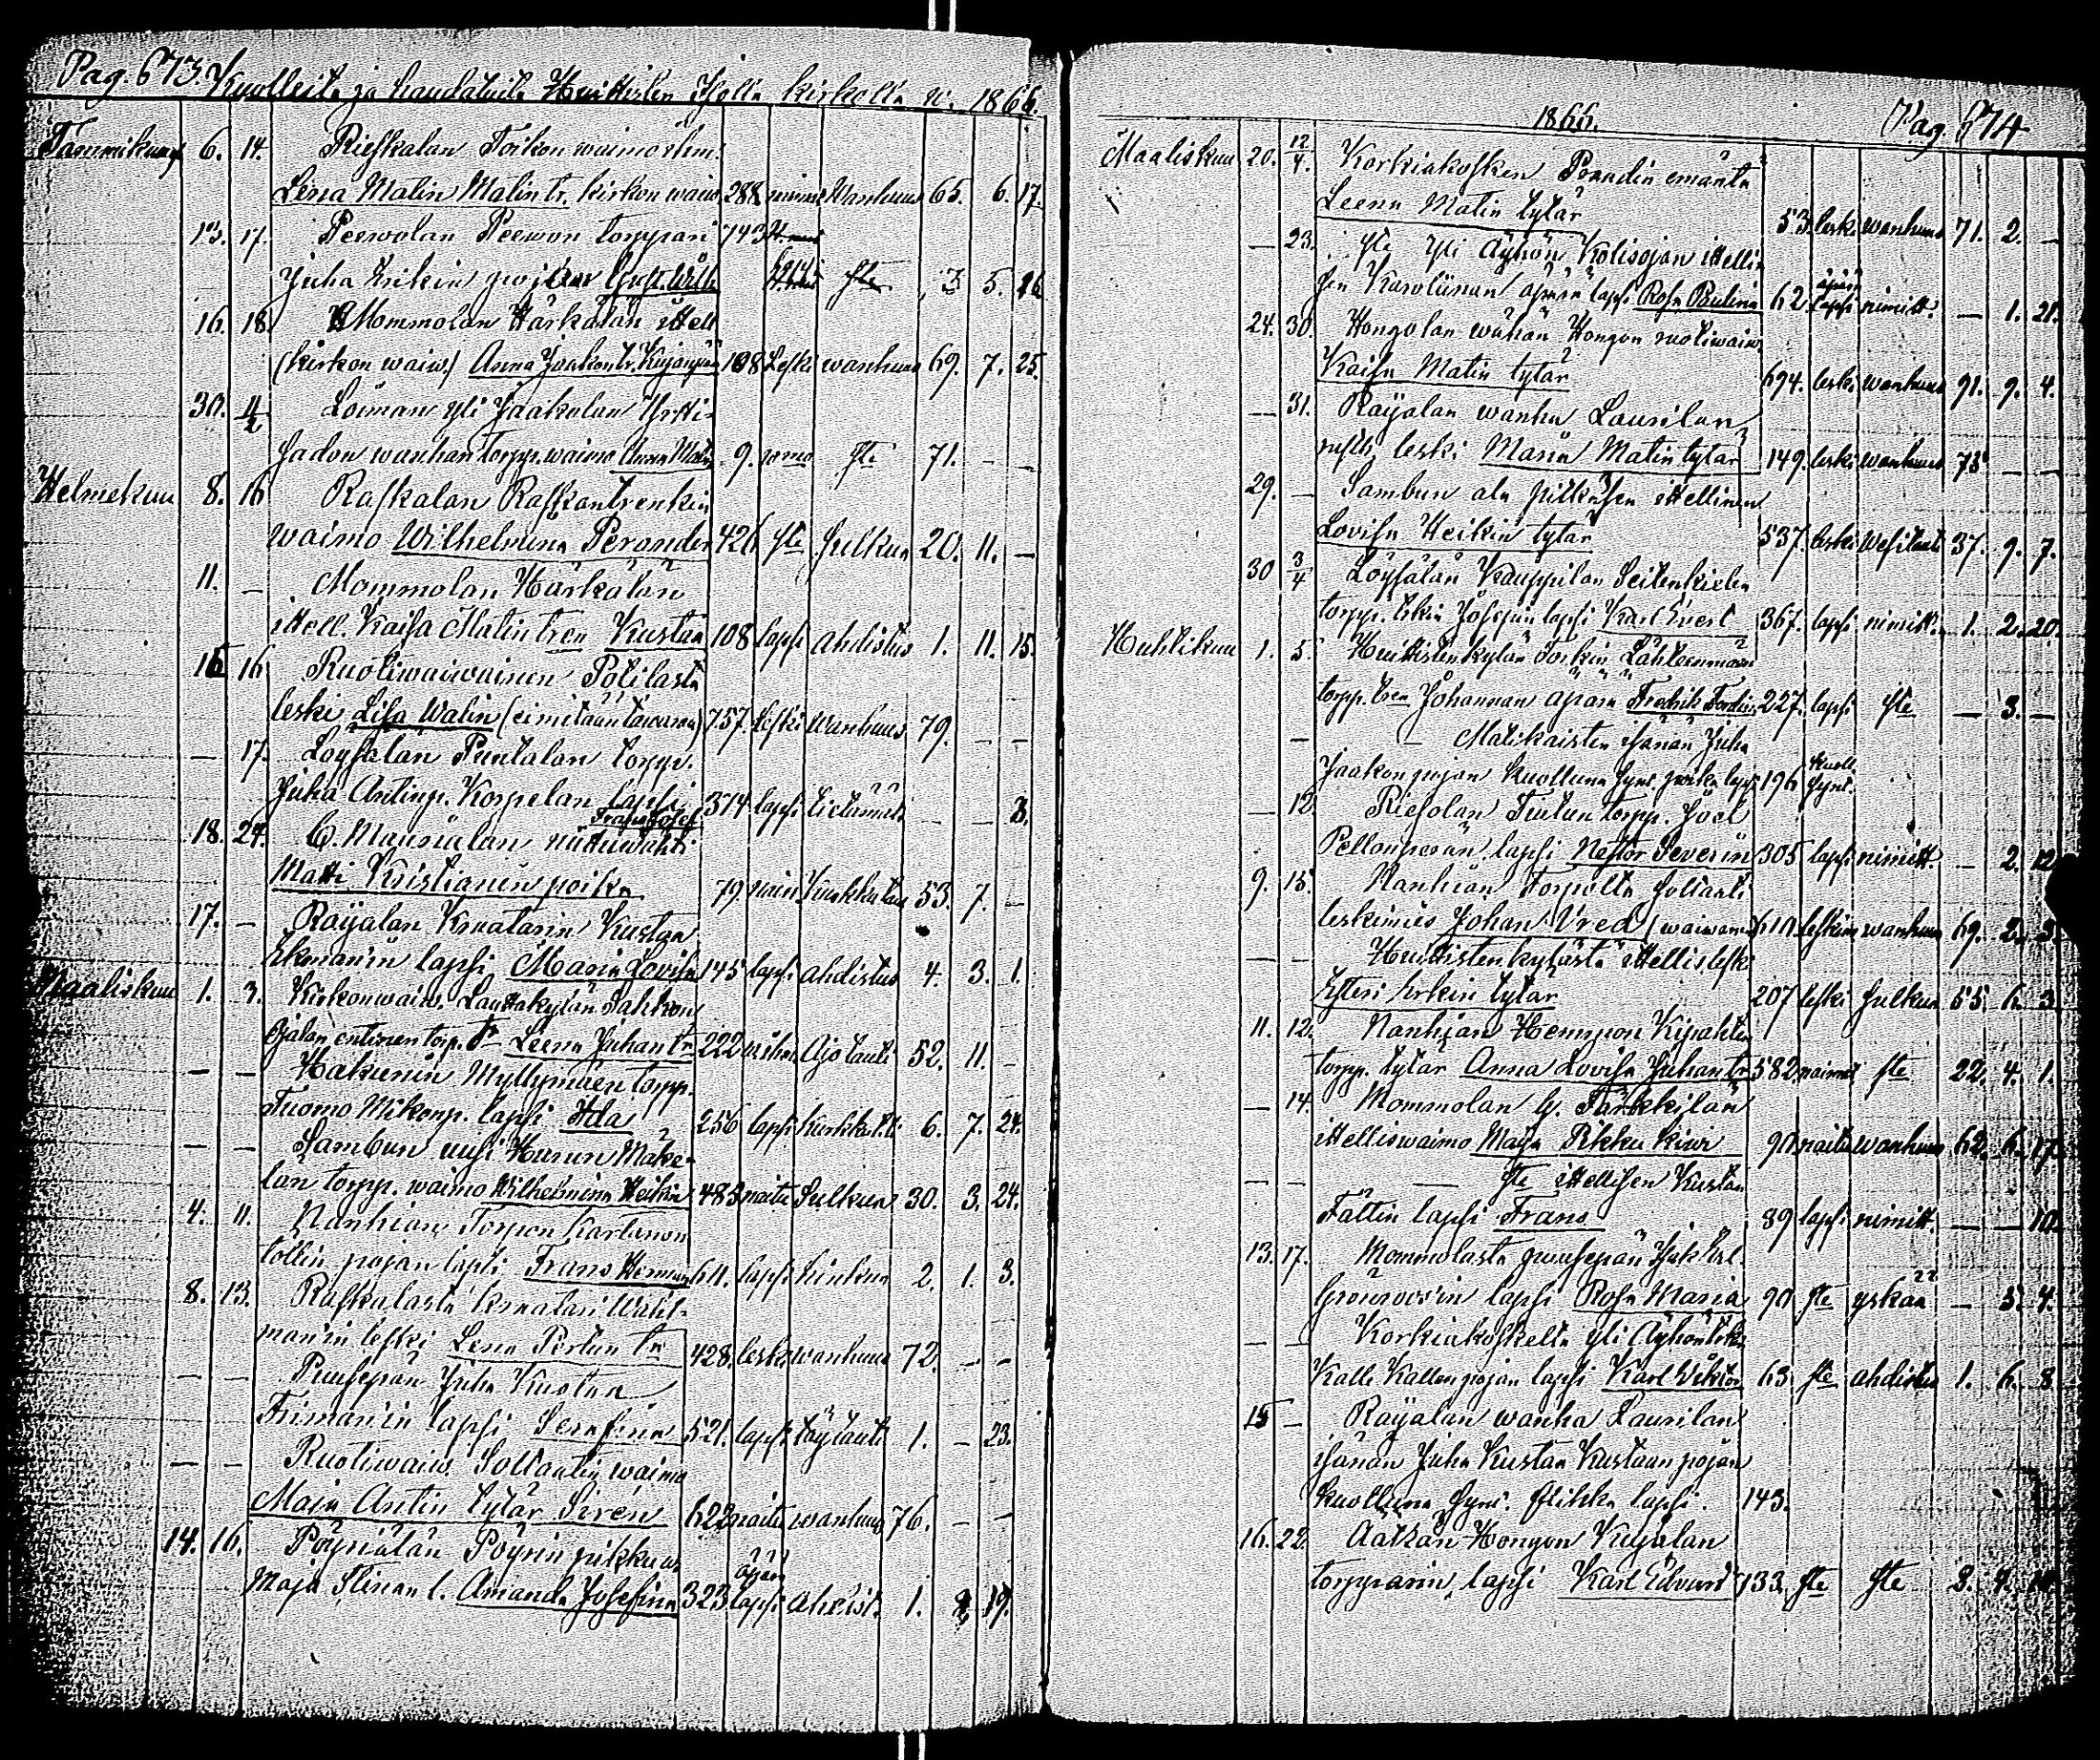 Pag. 673. Kuolleita ja haudatuita Huittisten Isolla kirkolla v. 1866.
Tammikuu 6. 14. Rieskalan Toikon waimoihm:
Lena Malin Malin tr. kirkon waiw. 288. Wanhuus 65. 6. 17.
13. 17. Peewolan Peewon torppari 743
Juha Erikin pojan Gust. Wilh. ste 3 5. 26
16. 18. Mommolan Härkälän ittell.
(kirkon waiw.) Anna Jaakon tr. 108 Leski wanhuus 69. 7. 25.
30. 4/2 Loiman yli Jaakolan
wanhan torpp. waimo Anna Matin 9. ste 71. - -
Helmekuu 8. 16 Raskalan Raskan trenkin
waimo Wilhelmina Perander 426 ste sulkua 20. 11. -
11. - Mommolan Härkälän
ittell. Kaisa Matin tren Kustaa 108 lapsi ahdistus 1. 11. 15.
15 16 Ruotiwaiwainen Potilasta
leski Lisa Walin (ei mitään tawaraa) 757. Leski Wanhuus 79. - -
- 17. Loysälän Puntalan torpp.
Juha Antinp. Korpelan lapsi 374 lapsi tietämät. - - 3.
Frans Josef
18. 24. C. Mauriulan niittuwahti
Matti Kristianin poika 79. nain. Kurkkutau 53. 7. -
17. - Raijalan Knaatarin Kustaa
Ekman'in lapsi Maria Lovisa 145 lapsi ahdistus 4. 3. 1.
Maaliskuu 1. 3. Kirkonwaiw. Lauttakylän Sahkon
Ojalan entinen torp. tr Leena Juhan tr 222 Ajotauti 52. 11. -
- - Hakunin Myllymäen torpp.
Tuomo Mikonp. lapsi Ida 256 lapsi kurkkut.ti 6. 7. 24.
- - Sambun uusi Hurun Mäke-
lan torpp. waimo Wilhelmina Heikin 483 naitu Sulkua 30. 3. 24.
4. 11. Nanhian Torpon Karlanon
tollin pojan lapsi Frans Herman 611. lapsi hinkua 2. 1. 3.
8. 13. Raskalasta knaatari Wahl-
man'in leski Lena Pertun tr 428. leski wanhuus 72. - -
- - Puusepän Juha Kustaa
Friman'in lapsi Serafina 521. lapsi täytauti 1. - 23.
- - Ruotiwaiw. Soltantin waimo
Maja Antin tytär Siren 622 naitu wanhuus 76. - -
14. 16. Pöyriälän Pöyrin piikku w.
äpärä
Maja Stinan l. Amanda Josefina 323 lapsi ahdist. 1. 2 19.
1866. Pag. 674
Maaliskuu 20. 12/4. Korkiakosken Prandin emäntä
Leena Matin tytär 53. leski wanhuus 71. 2. -
- 23. ste yli Äyhön Kolisojan ittelli-
äpärä
sen Karoliinan äpärä lapsi Rosa Paulina 62. lapsi nimitt. - 1. 21.
24. 30. Hongolan wähän Hongon ruotiwaiw.
Kaisa Matin tytär 694. leski wanhuus 91. 9. 4.
- 31. Raijalan wanha Laurilan
leski Maria Matin tytär 149. leski wanhuus 73 - -
29. - Sambun ala Pitkäsen ittellinen
Lovisa Heikin tytär 537. leski Wesitaut 37. 9. 7.
30 3/4 Loysälän Kauppilan Seitenkielen
torpp. Erkin Josepin lapsi Karl Evert 367. lapsi nimitt. 1. 2. 20.
Huhtikuu 1. 5. Huittistenkylän Sorkin Lähteenmäen
torpp. tren Johannan äpärä Fredrik Ferdin. 227. lapsi ste - 3. -
- - Matikaisten isänän Juha
kuoll.
Jaakon pojan kuolluna synt. poika lapsi 196 synt.
- 12 Riesolan Tiutun torpp. Joel
Pellonperän lapsi Nestor Severin 305 lapsi nimitt. - 2. 12
9. 15. Nanhian Torpolta soltanti
leskimies Johan Vred (waiwan) 610 leskim wanhuus 69. 2. 3
- - Huittistenkylästä ittellis leski
Esteri Erkin tytär 207 leski sulkua 55. 6. 3
11. 12. Nanhian Hempon Kipahten
torpp. tytär Anna Lovisa Juhan tr 582. naimat ste 22. 4. 1.
- 14. Mommolan G. Tärkkilän
ittelliswaimo Maja Pikku kiwi 90 naitu wanhuus 62. 6. 17
- - - ste ittellisen Kustaa
Fättin lapsi Frans 89 lapsi nimitt. - - 10
13. 17. Mommolasta puusepän Isak Wal.
Grönroos'in lapsi Rosa Maria 90 ste yskää - 5. 4.
- - Korkiakoskelta yli Äyhön trki
Kalle Kallenpojan lapsi Karl Wiktor 63 ste ahdistus 1. 6. 8
15 - Raijalan wanha Laurilan
isänän Juha Kustaa Kustaan pojan
kuolluna synt. flikka lapsi. 143.
16. 22 Aatkän Hongon Kujalan
torpparin lapsi Karl Edvard 733. ste ste 3. 9.